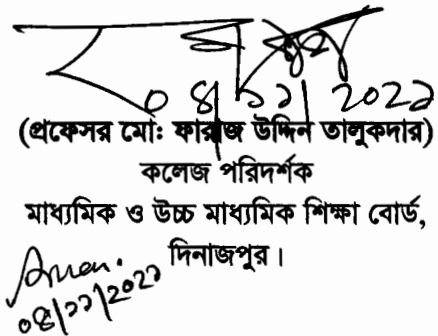 ০৪/১১/২০২১
(প্রফেসর মোঃ ফারাজ উদ্দিন তালুকদার)
কলেজ পরিদর্শক
মাধ্যমিক ও উচ্চ মাধ্যমিক শিক্ষা বোর্ড,
দিনাজপুর।
০৪/১১/২০২১